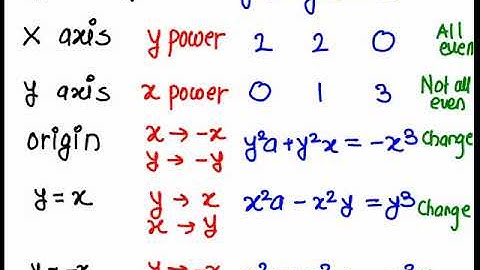 X axis y power 2 2 0 All even
y axis x power 0 1 3 Not all even
origin x → -x y → -y y²a + y²x = -x³ Change
y = x y → x x → y x²a - x²y = y³ Change
y = -x y → -x